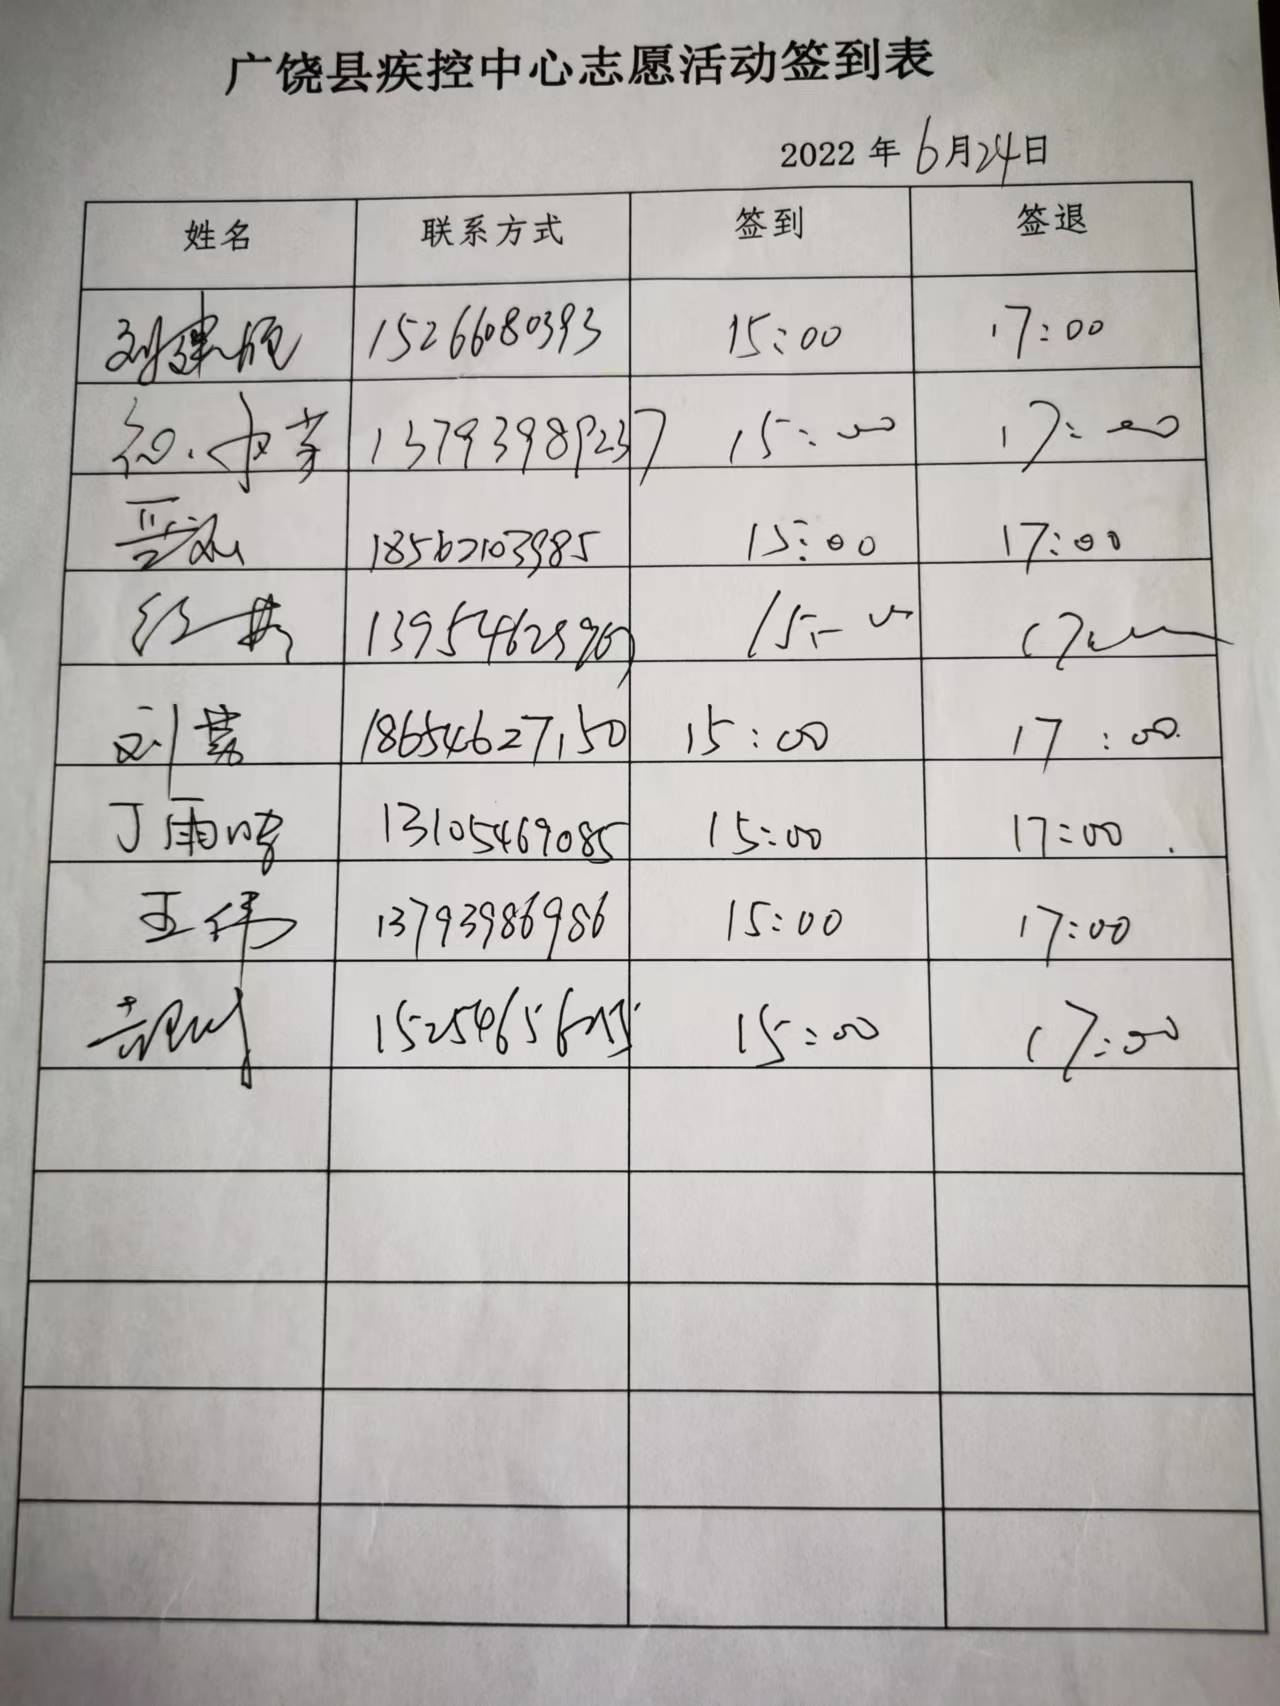 广饶县疾控中心志愿活动签到表
2022 年 6月24日
姓名 联系方式 签到 签退
刘建 15266080393 15:00 17:00
13793989237 15:00 17:00
18562103985 15:00 17:00
15:00 17:00
刘 18654627150 15:00 17:00
丁雨晴 13105469085 15:00 17:00
王伟 13793986986 15:00 17:00
15:00 17:00